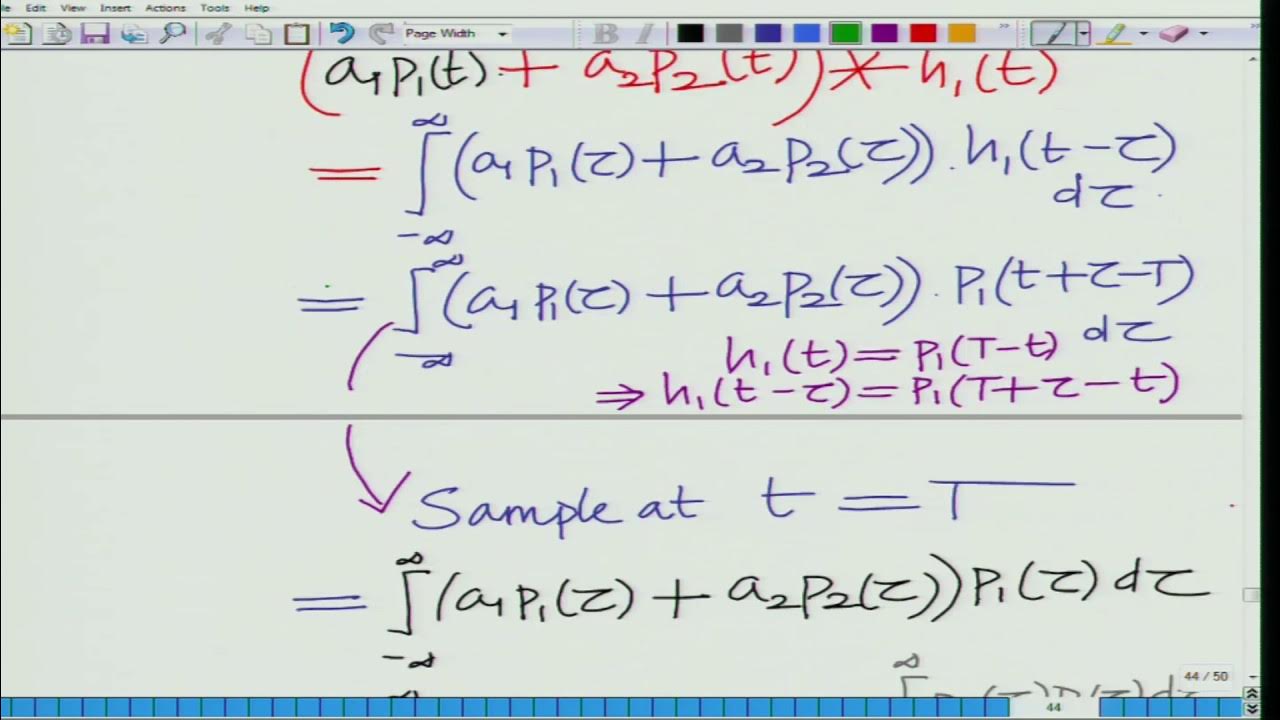 Edit View Insert Actions Tools Help
Page Width B I
(a₁p₁(t) + a₂p₂(t)) * h₁(t)
= ∫_{-∞}^{∞} (a₁p₁(τ) + a₂p₂(τ)) . h₁(t-τ)
dτ
= ∫_{-∞}^{∞} (a₁p₁(τ) + a₂p₂(τ)) . p₁(t+τ-T)
dτ
h₁(t) = p₁(T-t)
⇒ h₁(t-τ) = p₁(T+τ-t)
Sample at t = T
= ∫_{-∞}^{∞} (a₁p₁(τ) + a₂p₂(τ)) p₁(τ) dτ
44 / 50
44